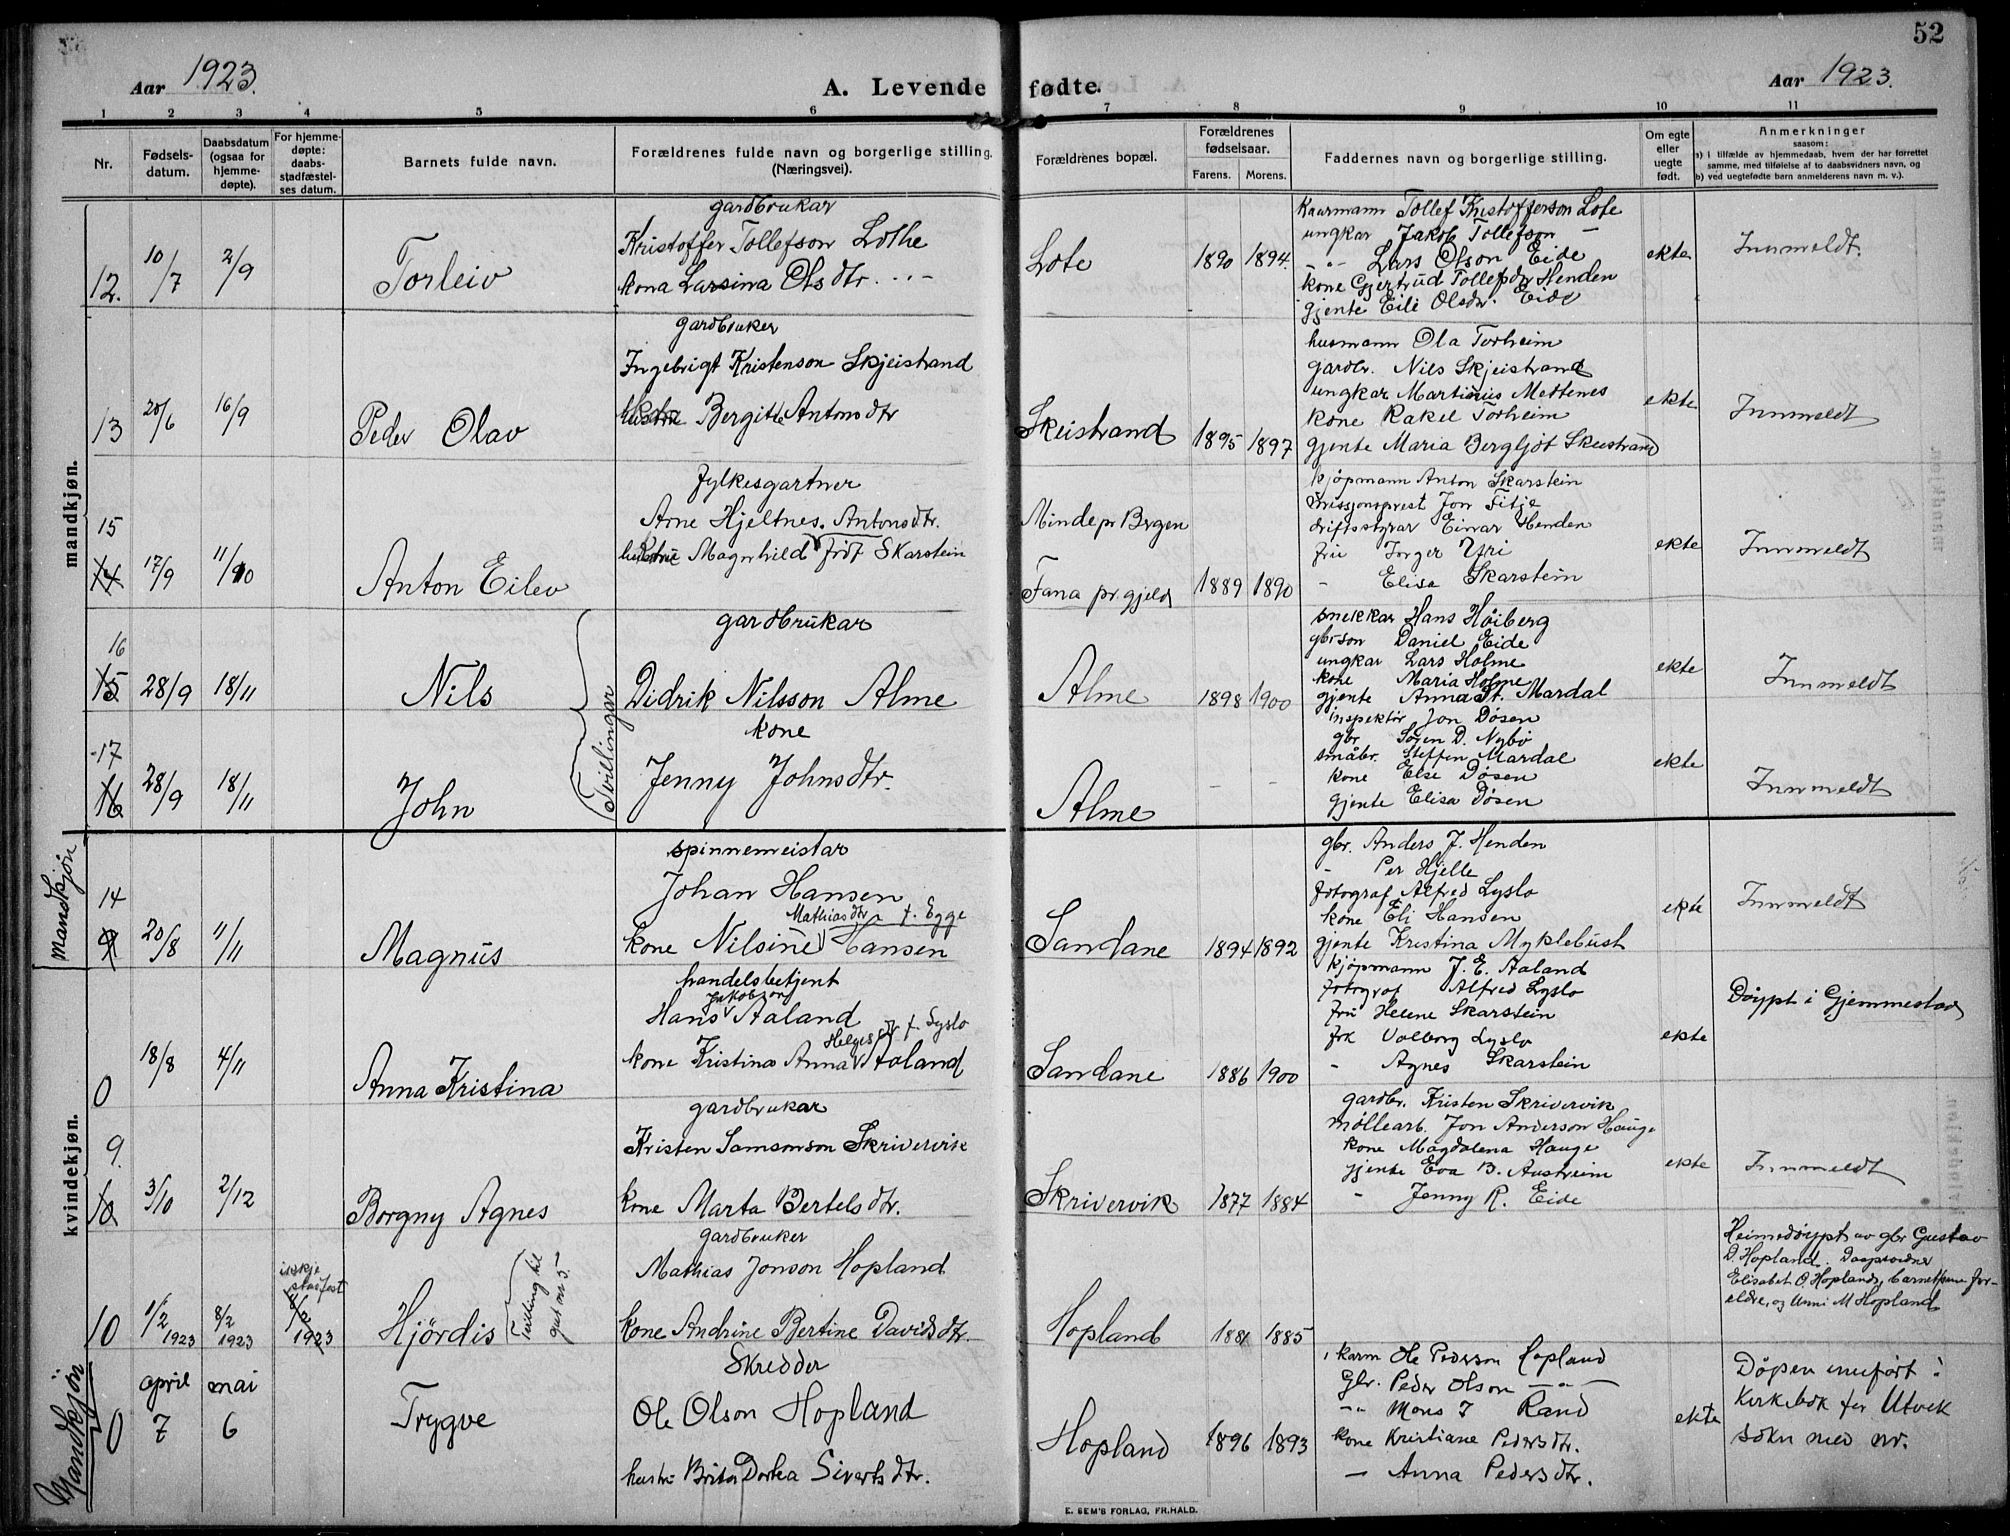 52
Aar 1923.
A. Levende fødte.
Aar 1923.
1 2 3 4 5 6 7 8 9 10 11
Nr.
Fødsels-
datum.
Daabsdatum
(ogsaa for
hjemme-
døpte).
For hjemme-
døpte:
daabs-
stadfæstel-
ses datum.
Barnets fulde navn.
Forældrenes fulde navn og borgerlige stilling.
(Næringsvei).
Forældrenes bopæl.
Forældrenes
fødselsaar.
Farens. Morens.
Faddernes navn og borgerlige stilling.
Om egte
eller
uegte
født.
Anmerkninger
saasom:
a) i tilfælde av hjemmedaab, hvem der har forrettet
samme, med tilføielse af to daabsvidners navn, og
b) ved uegtefødte barn anmelderens navn m. v.).
mandkjøn.
12. 10/7 2/9 Torleiv
gardbrukar
Kristoffer Tollefson Lothe
kona Larsina Olsdtr. - " -
Lote 1890 1894.
Kaarmann Tollef Kristofferson Lote
ungkar Jakob Tollefson -
- " - Lars Olson Eide
kone Gjertrud Tollefsdtr Henden
gjente Eili Olsdr. Eide
ekte Innmeldt.
13 20/6 16/9 Peder Olav
gardbruker
Ingebrigt Kristenson Skjeistrand
Bergitte Antonsdtr
Skeistrand 1895 1897
husmann Ola Torheim
gardbr. Nils Skjeistrand
ungkar Martinius Mettenes
kone Rakel Torheim
gjente Maria Bergljot Skeistrand
ekte Innmeldt
15
14 17/9 11/10 Anton Eilev
fylkesgartner
Arne Hjeltnes. Antonsdtr.
Magnhild født Skarstein
Minde pr Bergen
Fana pr.gjeld 1889 1890
kjøpmann Anton Skarstein
missjonsprest Jon Fitje
driftsstyrar Einar Henden
fru Inger Yri
- Elisa Skarstein
ekte Innmeldt
16
15 28/9 18/11 Nils
Tvillingar
gardbrukar
Didrik Nilsson Alme
kone
Jenny Johnsdtr.
Alme 1898 1900
snekkar Hans Høiberg
gbr.son Daniel Eide
ungkar Lars Holme
kone Maria Holme
gjente Anna St. Mardal
ekte Innmeldt
17
16 28/9 18/11 John
Alme - -
inspektør Jon Døsen
gbr Søren D. Nybø
småbr. Steffen Mardal
kone Else Døsen
gjente Elisa Døsen
ekte Innmeldt
Mandkjøn
14
9 20/8 11/11 Magnus
spinnemeistar
Johan Hansen
Mathiasdtr f. Egge
kone Nilsine Hansen
Sandane 1894 1892
gbr. Anders J. Henden
- Per Hjelle
fotograf Alfred Lyslo
kone Eli Hansen
gjente Kristina Myklebust
ekte Innmeldt
kvindekjøn.
0 18/8 4/11 Anna Kristina
handelsbetjent
Jakobson
Hans Aaland
Helgesdtr f. Lyslo
kone Kristina Anna Aaland
Sandane 1886 1900
kjøpmann J. E. Aaland
fotograf Alfred Lyslo
fru Helene Skarstein
frk Valborg Lyslo
- Agnes Skarstein
ekte Døypt i Gjemmestad
9.
10 3/10 2/12 Borgny Agnes
gardbrukar
Kristen Samsonson Skrivervik
kone Marta Bertelsdtr.
Skrivervik 1877 1884
gardbr. Kristen Skrivervik
møllearb. Jon Anderson Hauge
kone Magdalena Hauge
gjente Eva B. Austreim
- Jenny R. Eide
ekte Innmeldt
10 1/2 1923 8/2 1923 stadfest 1923 Hjørdis
Tvilling til
gut nr 5.
gardbruker
Mathias Jonson Hopland
kone Andrine Bertine Davidsdtr.
Hopland 1881 1885
Heimedøypt av gbr Gustav
D. Hopland. Daapsvidner
Elisabet O Hopland, barnets for-
eldre, og Anni M Hopland
Mandkjøn
0 april 7 mai 6 Trygve
Skredder
Ole Olson Hopland
hustru Brita Dortea Sivertsdtr.
Hopland 1896 1893
karm Ole Pederson Hopland
Gbr. Peder Olson - " -
- " - Mons J Rand
kone Kristiane Pedersdtr.
- Anna Pedersdtr.
ekte
Døpen innført i
Kirkebok for Utvik
sokn med nr.
E. SEM'S FORLAG, FR.HALD.